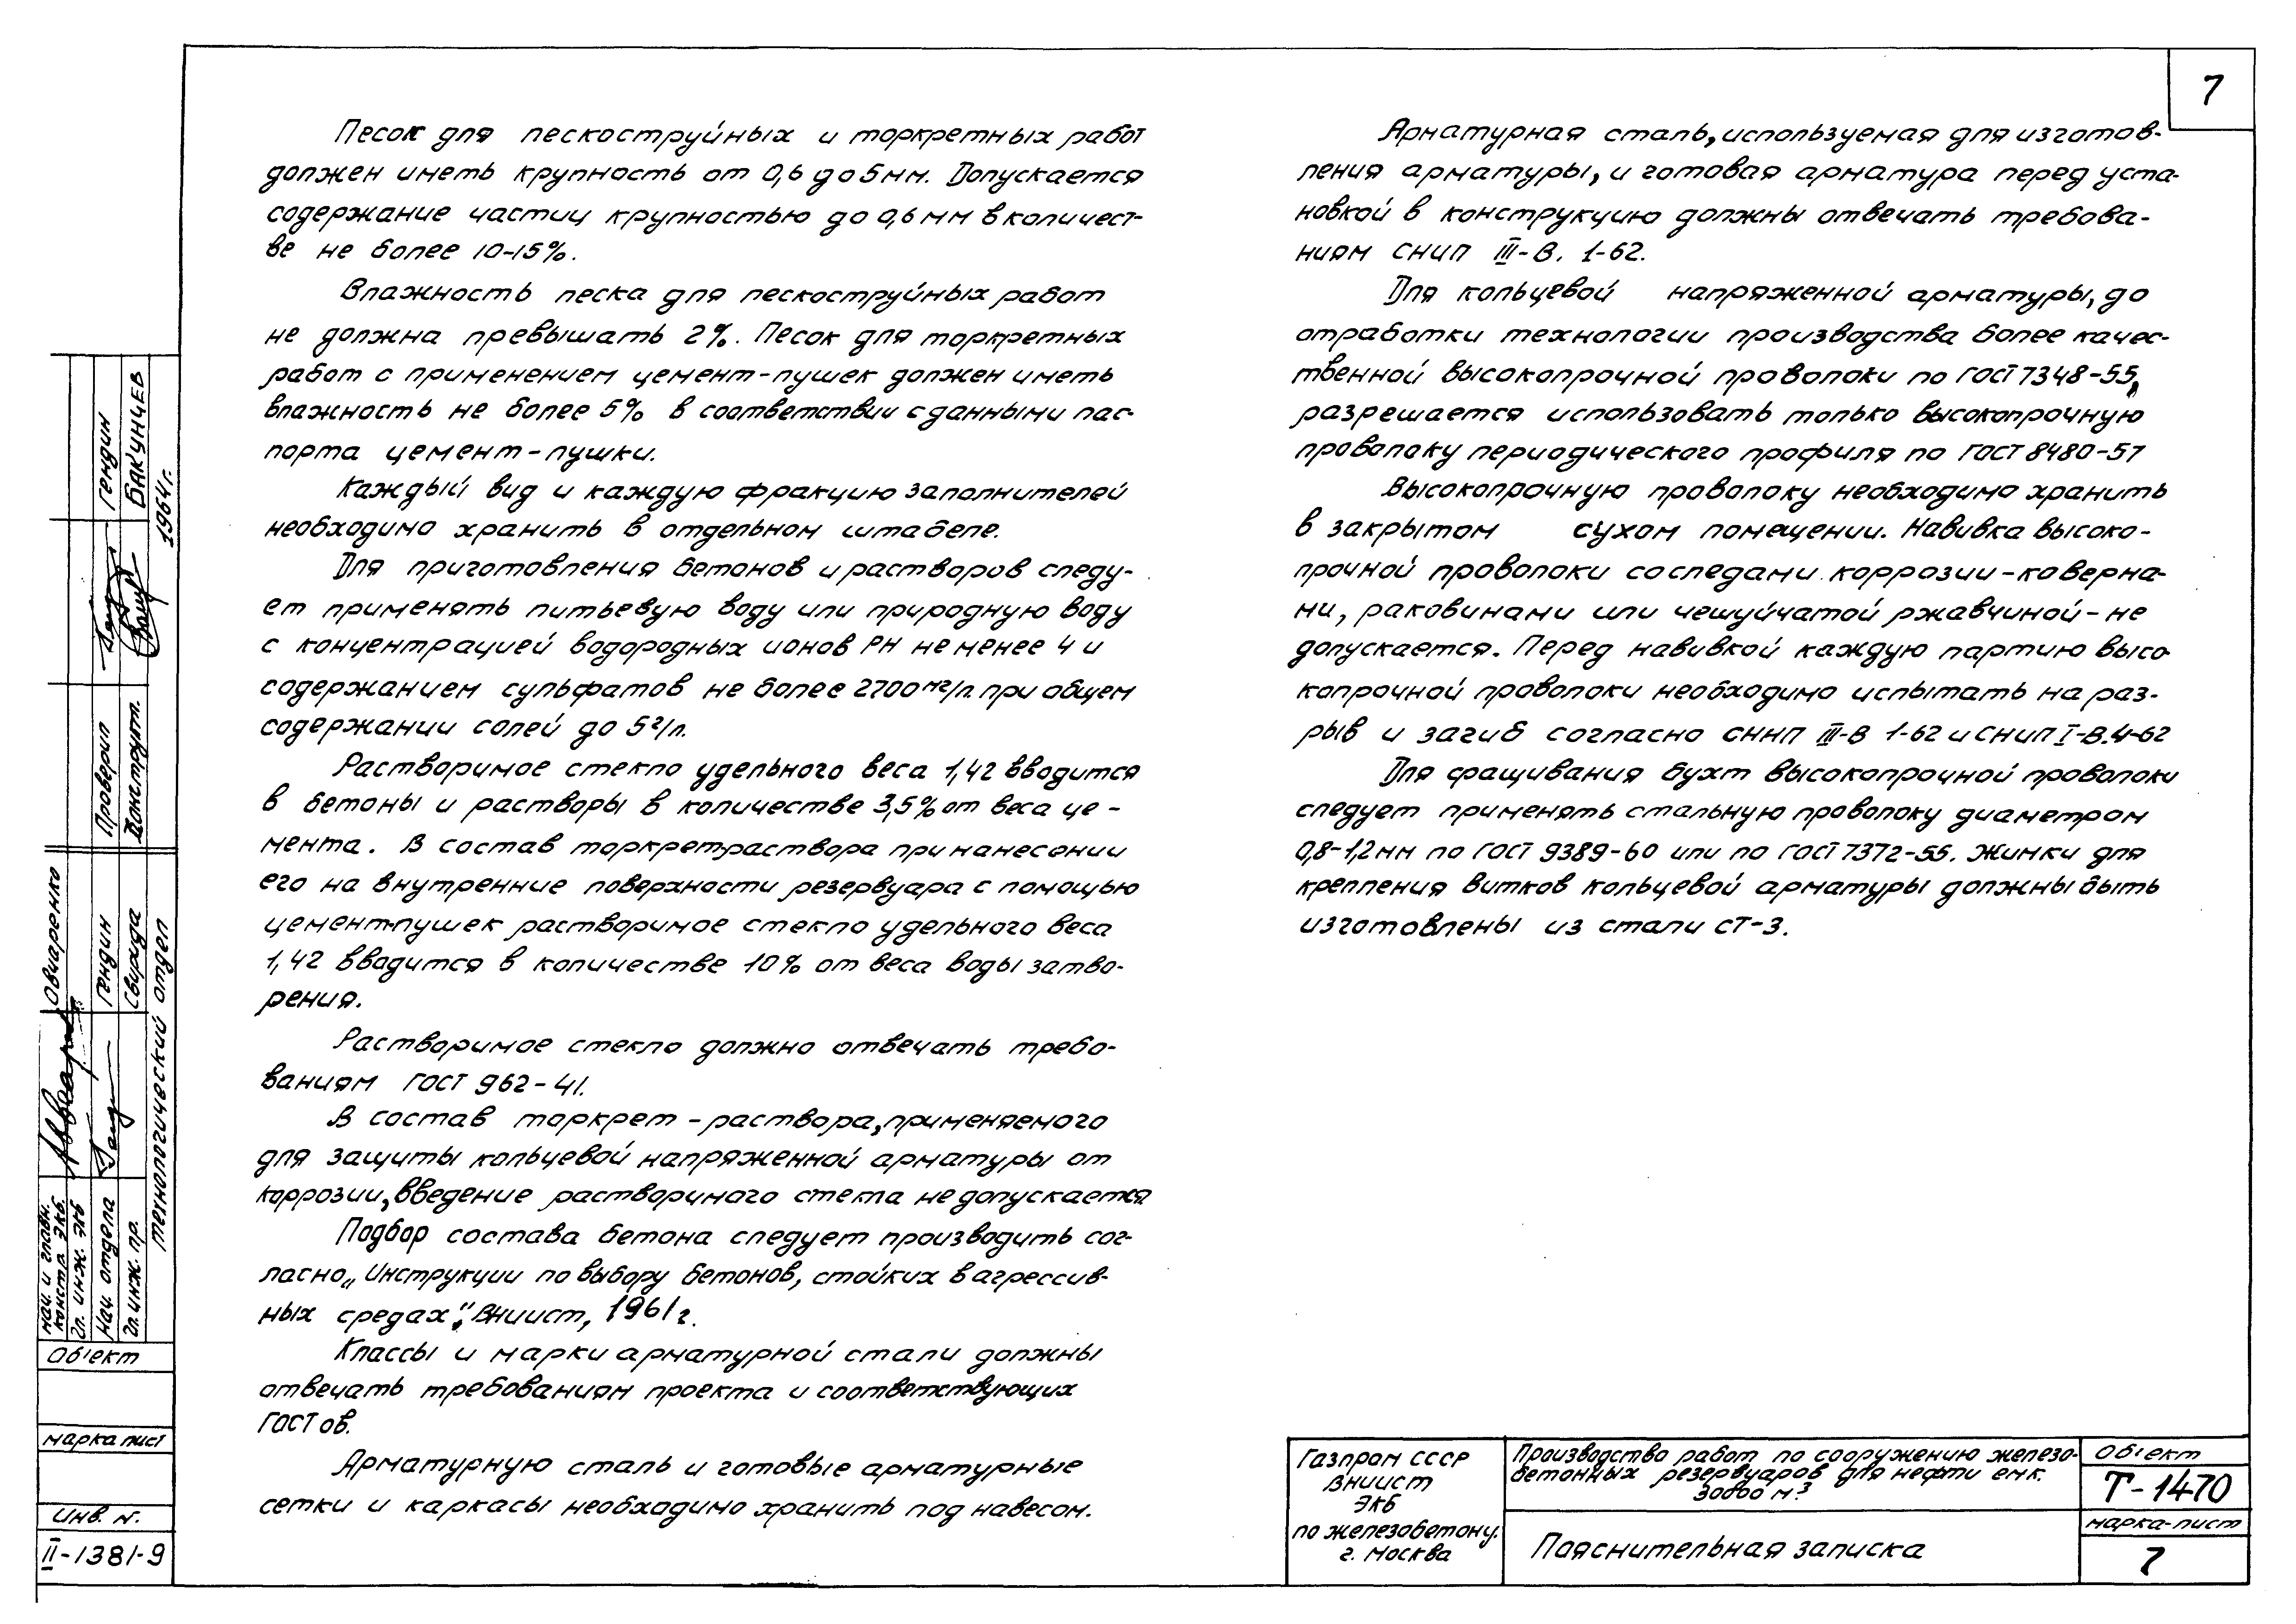 7
Песок для пескоструйных и торкретных работ
должен иметь крупность от 0,6 до 5мм. Допускается
содержание частиц крупностью до 0,6 мм в количест-
ве не более 10-15%.
Влажность песка для пескоструйных работ
не должна превышать 2%. Песок для торкретных
работ с применением цемент-пушек должен иметь
влажность не более 5% в соответствии с данными пас-
порта цемент-пушки.
Каждый вид и каждую фракцию заполнителей
необходимо хранить в отдельном штабеле.
Для приготовления бетонов и растворов следу-
ет применять питьевую воду или природную воду
с концентрацией водородных ионов РН не менее 4 и
содержанием сульфатов не более 2700 мг/л при общем
содержании солей до 5 г/л.
Растворимое стекло удельного веса 1,42 вводится
в бетоны и растворы в количестве 3,5% от веса це-
мента. В состав торкрет-раствора при нанесении
его на внутренние поверхности резервуара с помощью
цемент-пушек растворимое стекло удельного веса
1,42 вводится в количестве 10% от веса воды затво-
рения.
Растворимое стекло должно отвечать требо-
ваниям ГОСТ 962-41.
В состав торкрет-раствора, применяемого
для защиты кольцевой напряженной арматуры от
коррозии, введение растворимого стекла не допускается
Подбор состава бетона следует производить сог-
ласно „Инструкции по выбору бетонов, стойких в агрессив-
ных средах", ВНИИСТ, 1961г.
Классы и марки арматурной стали должны
отвечать требованиям проекта и соответствующих
ГОСТов.
Арматурную сталь и готовые арматурные
сетки и каркасы необходимо хранить под навесом.
Арматурная сталь, используемая для изготов-
ления арматуры, и готовая арматура перед уста-
новкой в конструкцию должны отвечать требова-
ниям СНИП III-В. 1-62.
Для кольцевой напряженной арматуры, до
отработки технологии производства более качес-
твенной высокопрочной проволоки по ГОСТ 7348-55,
разрешается использовать только высокопрочную
проволоку периодического профиля по ГОСТ 8480-57
Высокопрочную проволоку необходимо хранить
в закрытом сухом помещении. Навивка высоко-
прочной проволоки со следами коррозии-каверна-
ми, раковинами или чешуйчатой ржавчиной-не
допускается. Перед навивкой каждую партию высо
копрочной проволоки необходимо испытать на раз-
рыв и загиб согласно СННП III-В 1-62 и СНИП I-В.4-62
Для сращивания бухт высокопрочной проволоки
следует применять стальную проволоку диаметром
0,8-1,2мм по ГОСТ 9389-60 или по ГОСТ 7372-55. Жимки для
крепления витков кольцевой арматуры должны быть
изготовлены из стали СТ-3.
Газпром СССР
ВНИИСТ
ЭКБ
по железобетону.
г. Москва
Производство работ по сооружению железо-
бетонных резервуаров для нефти емк.
30000 м³
Пояснительная записка
Объект
Т-1470
марка-лист
7
Нач. и главн.
констр. ЭКБ.
Овчаренко
Гл. инж. ЭКБ
Нач. отдела
Гендин
Гл. инж. пр.
Свирида
Технологический отдел
Проверил
Гендин
Конструкт.
Бакунчев
1964г.
Объект
марка лист
Инв. N.
II-1381-9